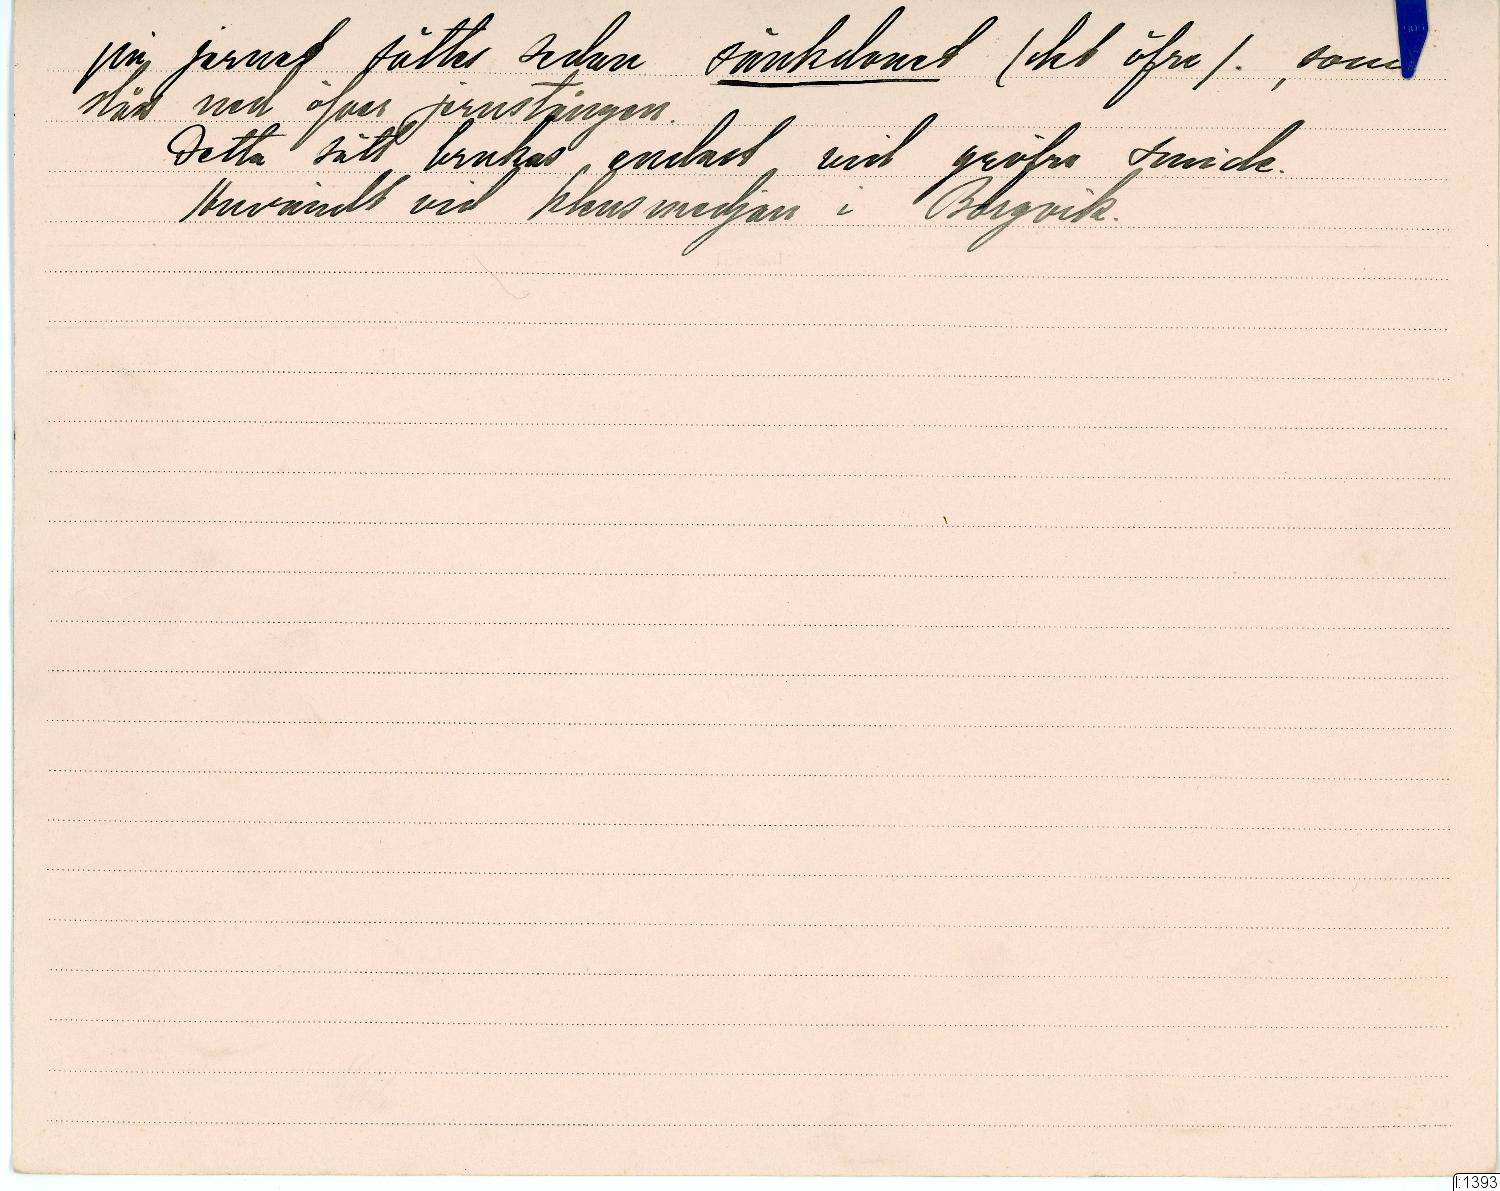 på jernet sättes sedan sänkdonet (det öfre). , som
slås ned öfver jernstången.
Detta sätt brukas endast vid gröfre smide.
Användt vid Klensmedjan i Borgvik.
1:1393